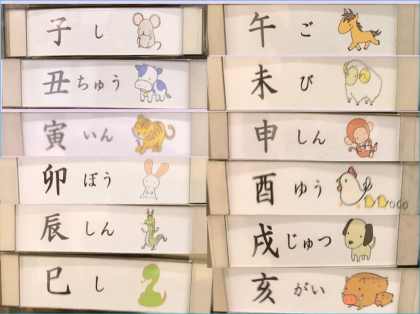 子 し
丑 ちゅう
寅 いん
卯 ぼう
辰 しん
巳 し
午 ご
未 び
申 しん
酉 ゆう
戌 じゅつ
亥 がい